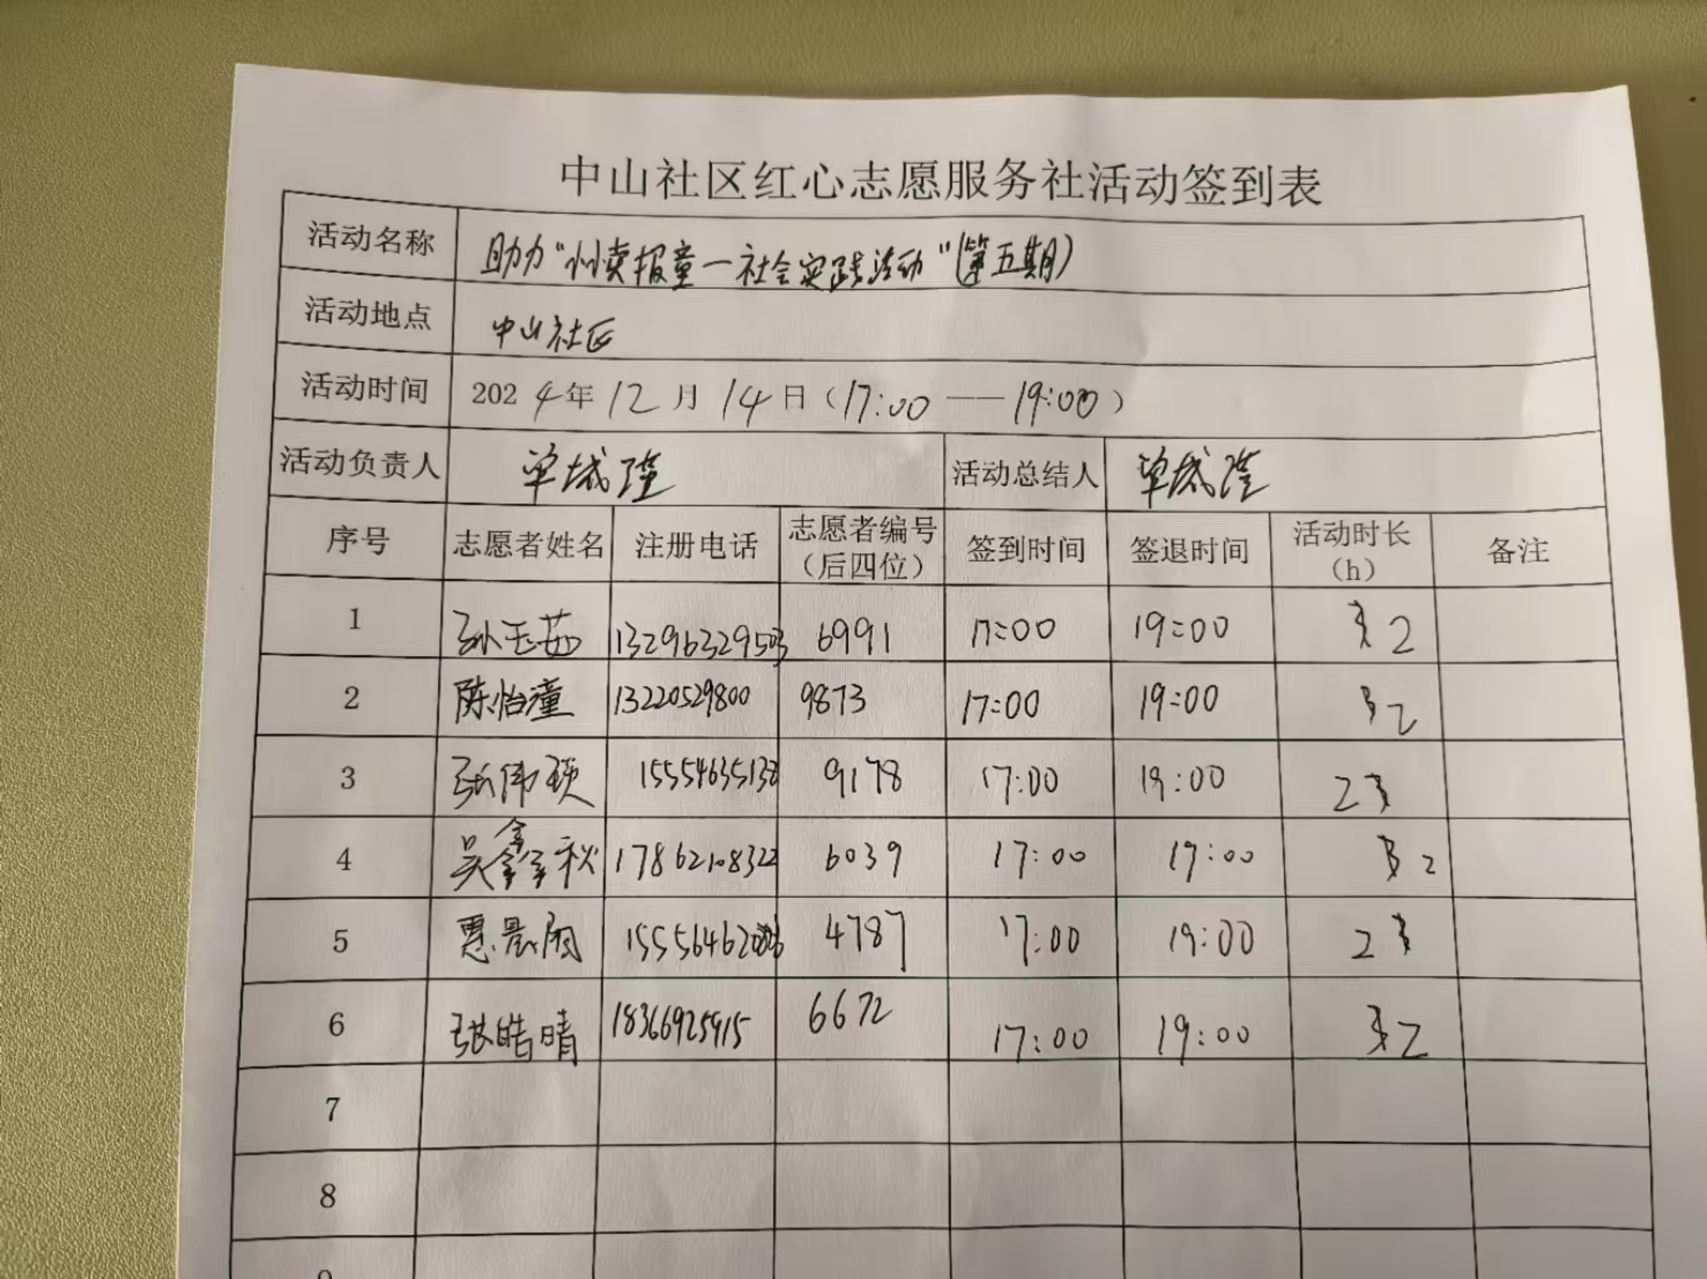 中山社区红心志愿服务社活动签到表
活动名称 助力“小小卖报童一社会实践活动”(第五期)
活动地点 中山社区
活动时间 2024年12月14日(17:00——19:00)
活动负责人 单 活动总结人 单
序号 志愿者姓名 注册电话 志愿者编号(后四位) 签到时间 签退时间 活动时长(h) 备注
1 孙玉茹 6991 17:00 19:00 2
2 陈怡潼 13220529800 9873 17:00 19:00 2
3 张伟 9178 17:00 19:00 2
4 吴鑫秋 17862108322 6039 17:00 19:00 2
5 惠晨雨 4787 17:00 19:00 2
6 张皓晴 18366925915 6672 17:00 19:00 2
7
8
9